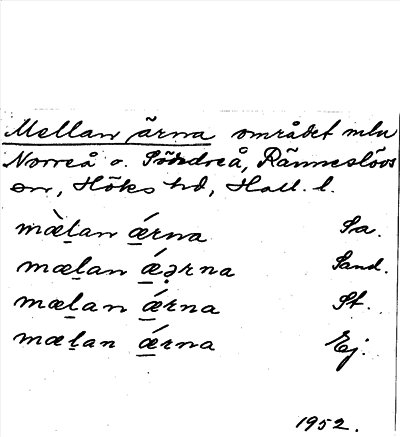 Mellan ärna området mln
Norreå o. Södreå, Ränneslövs
sn, Höks hd, Hall. l.
mæ̀l̠an ǽ̠rna Sa.
mæl̠an ǽ̠ə̣rna Sand.
mæl̠an ǽ̠rna St.
mæl̠an ǽ̠rna Ej.
1952.